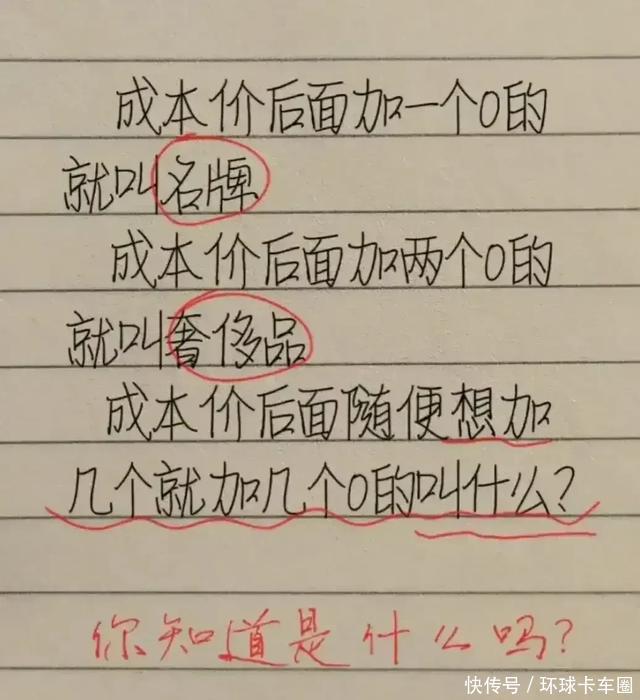 成本价后面加一个0的
就叫名牌
成本价后面加两个0的
就叫奢侈品
成本价后面随便想加
几个就加几个0的叫什么?
你知道是什么吗?
快传号/环球卡车圈